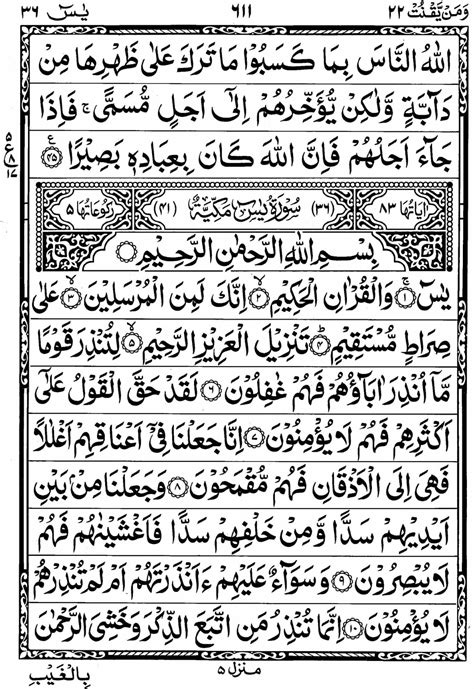 وَمَنْ يَّقْنُتْ ٢٢ ٦١١ يٰسٓ ٣٦
اللّٰهُ النَّاسَ بِمَا كَسَبُوْا مَا تَرَكَ عَلٰى ظَهْرِهَا مِنْ
دَآبَّةٍ وَّلٰكِنْ يُّؤَخِّرُهُمْ اِلٰٓى اَجَلٍ مُّسَمًّى ۚ فَاِذَا
جَآءَ اَجَلُهُمْ فَاِنَّ اللّٰهَ كَانَ بِعِبَادِهٖ بَصِيْرًا ۧ ﴿٤٥﴾
٥ ع ٨ ١٧
اٰيَاتُهَا ٨٣ (٣٦) سُوْرَةُ يٰسٓ مَكِّيَّةٌ (٤١) رُكُوْعَاتُهَا ٥
بِسْمِ اللّٰهِ الرَّحْمٰنِ الرَّحِيْمِ ۝
يٰسٓ ۚ ﴿١﴾ وَالْقُرْاٰنِ الْحَكِيْمِ ۙ ﴿٢﴾ اِنَّكَ لَمِنَ الْمُرْسَلِيْنَ ۙ ﴿٣﴾ عَلٰى
صِرَاطٍ مُّسْتَقِيْمٍ ؕ ﴿٤﴾ تَنْزِيْلَ الْعَزِيْزِ الرَّحِيْمِ ۙ ﴿٥﴾ لِتُنْذِرَ قَوْمًا
مَّآ اُنْذِرَ اٰبَآؤُهُمْ فَهُمْ غٰفِلُوْنَ ﴿٦﴾ لَقَدْ حَقَّ الْقَوْلُ عَلٰٓى
اَكْثَرِهِمْ فَهُمْ لَا يُؤْمِنُوْنَ ﴿٧﴾ اِنَّا جَعَلْنَا فِيْٓ اَعْنَاقِهِمْ اَغْلٰلًا
فَهِيَ اِلَى الْاَذْقَانِ فَهُمْ مُّقْمَحُوْنَ ﴿٨﴾ وَجَعَلْنَا مِنْۢ بَيْنِ
اَيْدِيْهِمْ سَدًّا وَّمِنْ خَلْفِهِمْ سَدًّا فَاَغْشَيْنٰهُمْ فَهُمْ
لَا يُبْصِرُوْنَ ﴿٩﴾ وَسَوَآءٌ عَلَيْهِمْ ءَاَنْذَرْتَهُمْ اَمْ لَمْ تُنْذِرْهُمْ
لَا يُؤْمِنُوْنَ ﴿١٠﴾ اِنَّمَا تُنْذِرُ مَنِ اتَّبَعَ الذِّكْرَ وَخَشِيَ الرَّحْمٰنَ
منزل ٥
بِالْغَيْبِ